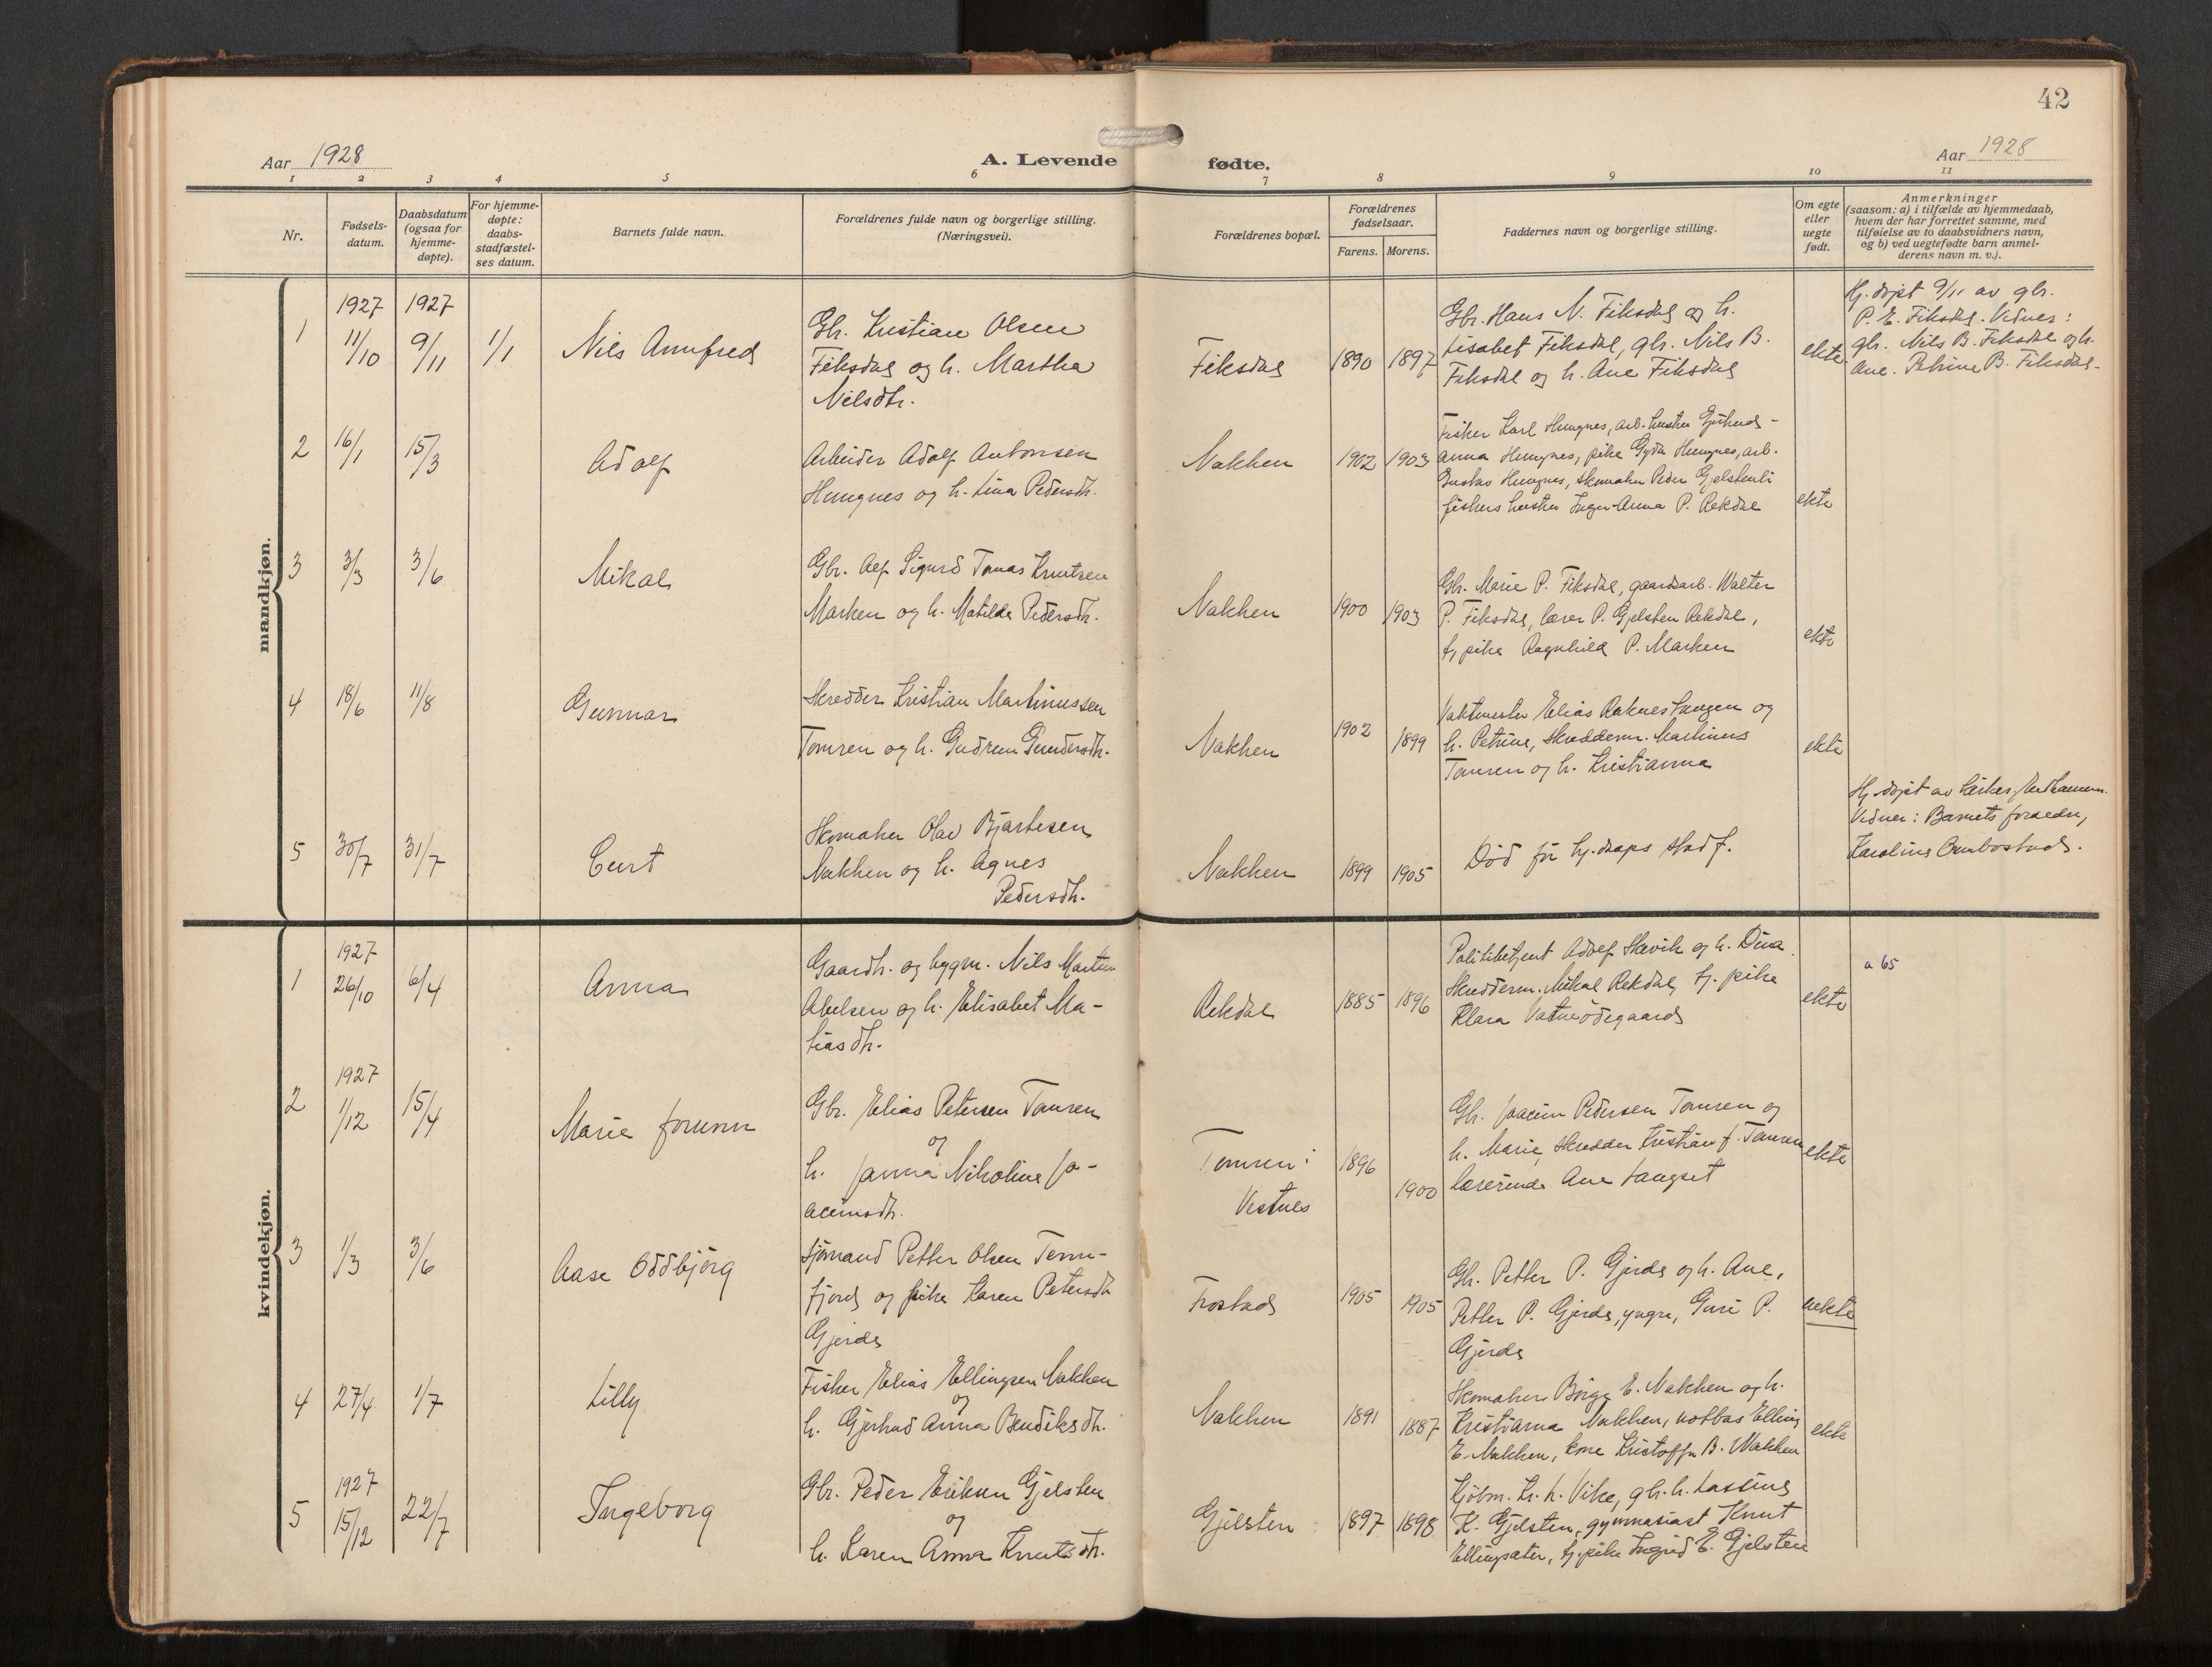 42
Aar 1928
A. Levende fødte.
Aar 1928
1 2 3 4 5 6 7 8 9 10 11
Nr.
Fødsels-
datum.
Daabsdatum
(ogsaa for
hjemme-
døpte).
For hjemme-
døpte:
daabs-
stadfæstel-
ses datum.
Barnets fulde navn.
Forældrenes fulde navn og borgerlige stilling.
(Næringsvei).
Forældrenes bopæl.
Forældrenes
fødselsaar.
Farens. Morens.
Faddernes navn og borgerlige stilling.
Om egte
eller
uegte
født.
Anmerkninger
(saasom: a) i tilfælde av hjemmedaab,
hvem der har forrettet samme, med
tilføielse av to daabsvidners navn,
og b) ved uegtefødte barn anmel-
derens navn m. v.).
mandkjøn.
1
1927
11/10
1927
9/11
1/1
Nils Annfred
Gbr. Kristian Olsen
Fiksdal og h. Martha
Nilsdtr.
Fiksdal
1890
1897
Gbr. Hans N. Fiksdal og h.
Lisabet Fiksdal, gbr. Nils B.
Fiksdal og h. Ane Fiksdal
ekte
Hj. døpt 9/11 av gbr.
P. E. Fiksdal. Vidner:
gbr. Nils B. Fiksdal og h.
Ane. Petrine B. Fiksdal.
2
16/1
15/3
Adolf
Arbeider Adolf Antonsen
Hungnes og h. Lina Pedersdtr.
Nakken
1902
1903
Fisker Karl Hungnes, arb. hustru
Anna Hungnes, pike Gyda Hungnes, arb.
Gustav Hungnes, skomaker Peder Gjelstenli
fiskers hustru Inger-Anna P. Rekdal
ekte
3
3/3
3/6
Mikal
Gbr. Alf Sigurd Tomas Knutsen
Marken og h. Matilde Pedersdtr.
Nakken
1900
1903
Gbr. Marie P. Fiksdal, gaardsarb. Walter
P. Fiksdal, lærer P. Gjelsten Rekdal,
tj. pike Ragnhild P. Marken
ekte
4
18/6
11/8
Gunnar
Skredder Kristian Martinussen
Tomren og h. Gudrun Gundersdtr.
Nakken
1902
1899
Vaktmester Elias Raknestangen og
h. Petrine, skredderm. Martinus
Tomren og h. Kristianna
ekte
5
30/7
31/7
Curt
Skomaker Olav Bjartesen
Nakken og h. Agnes
Pedersdtr.
Nakken
1899
1905
Død før hj.daaps stadf.
Hj. døpt av
Vidner: Barnets foreldre,
Karoline Ombostad.
kvindekjøn.
1
1927
26/10
6/4
Anna
Gaardbr. og bygm. Nils Martin
Abelsen og h. Elisabet Ma-
tiasdtr.
Rekdal
1885
1896
Politibetjent Adolf Skavik og h. Dina
Skredderm. Mikal Rekdal, tj. pike
Klara Vatneødegaard
ekte
a 65
2
1927
1/12
15/4
Marie Jorunn
Gbr. Elias Petersen Tomren
og
h. Janna Nikoline Jo-
acimsdtr.
Tomren i
Vestnes
1896
1900
Gbr. Joacim Pedersen Tomren og
h. Marie, skredder Kristian J. Tomren
lærerinde Ane Langset
ekte
3
1/3
3/6
Aase Oddbjørg
Sjømand Petter Olsen Tenn-
fjord og pike Karen Petersdtr
Gjerde
Frostad
1905
1905
Gbr. Petter P. Gjerde og h. Ane,
Petter P. Gjerde, yngre, Guri P.
Gjerde
uekte
4
27/4
1/7
Lilly
Fisker Elias Ellingsen Nakken
og
h. Gjerhud Anna Bendiksdtr.
Nakken
1891
1887
Skomaker Børge E. Nakken og h.
Kristianna Nakken, notbas Elling
E. Nakken, kone Kristoffa B. Nakken
ekte
5
1927
15/12
22/7
Ingeborg
Gbr. Peder Eriksen Gjelsten
og
h. Karen Anna Knutsdtr.
Gjelsten
1897
1898
Kjøbm. Kr. K. Vike, gbr. h. Lassine
K. Gjelsten, gymnasiast Knut
Ellingsæter, tj. pike Ingrid E. Gjelsten